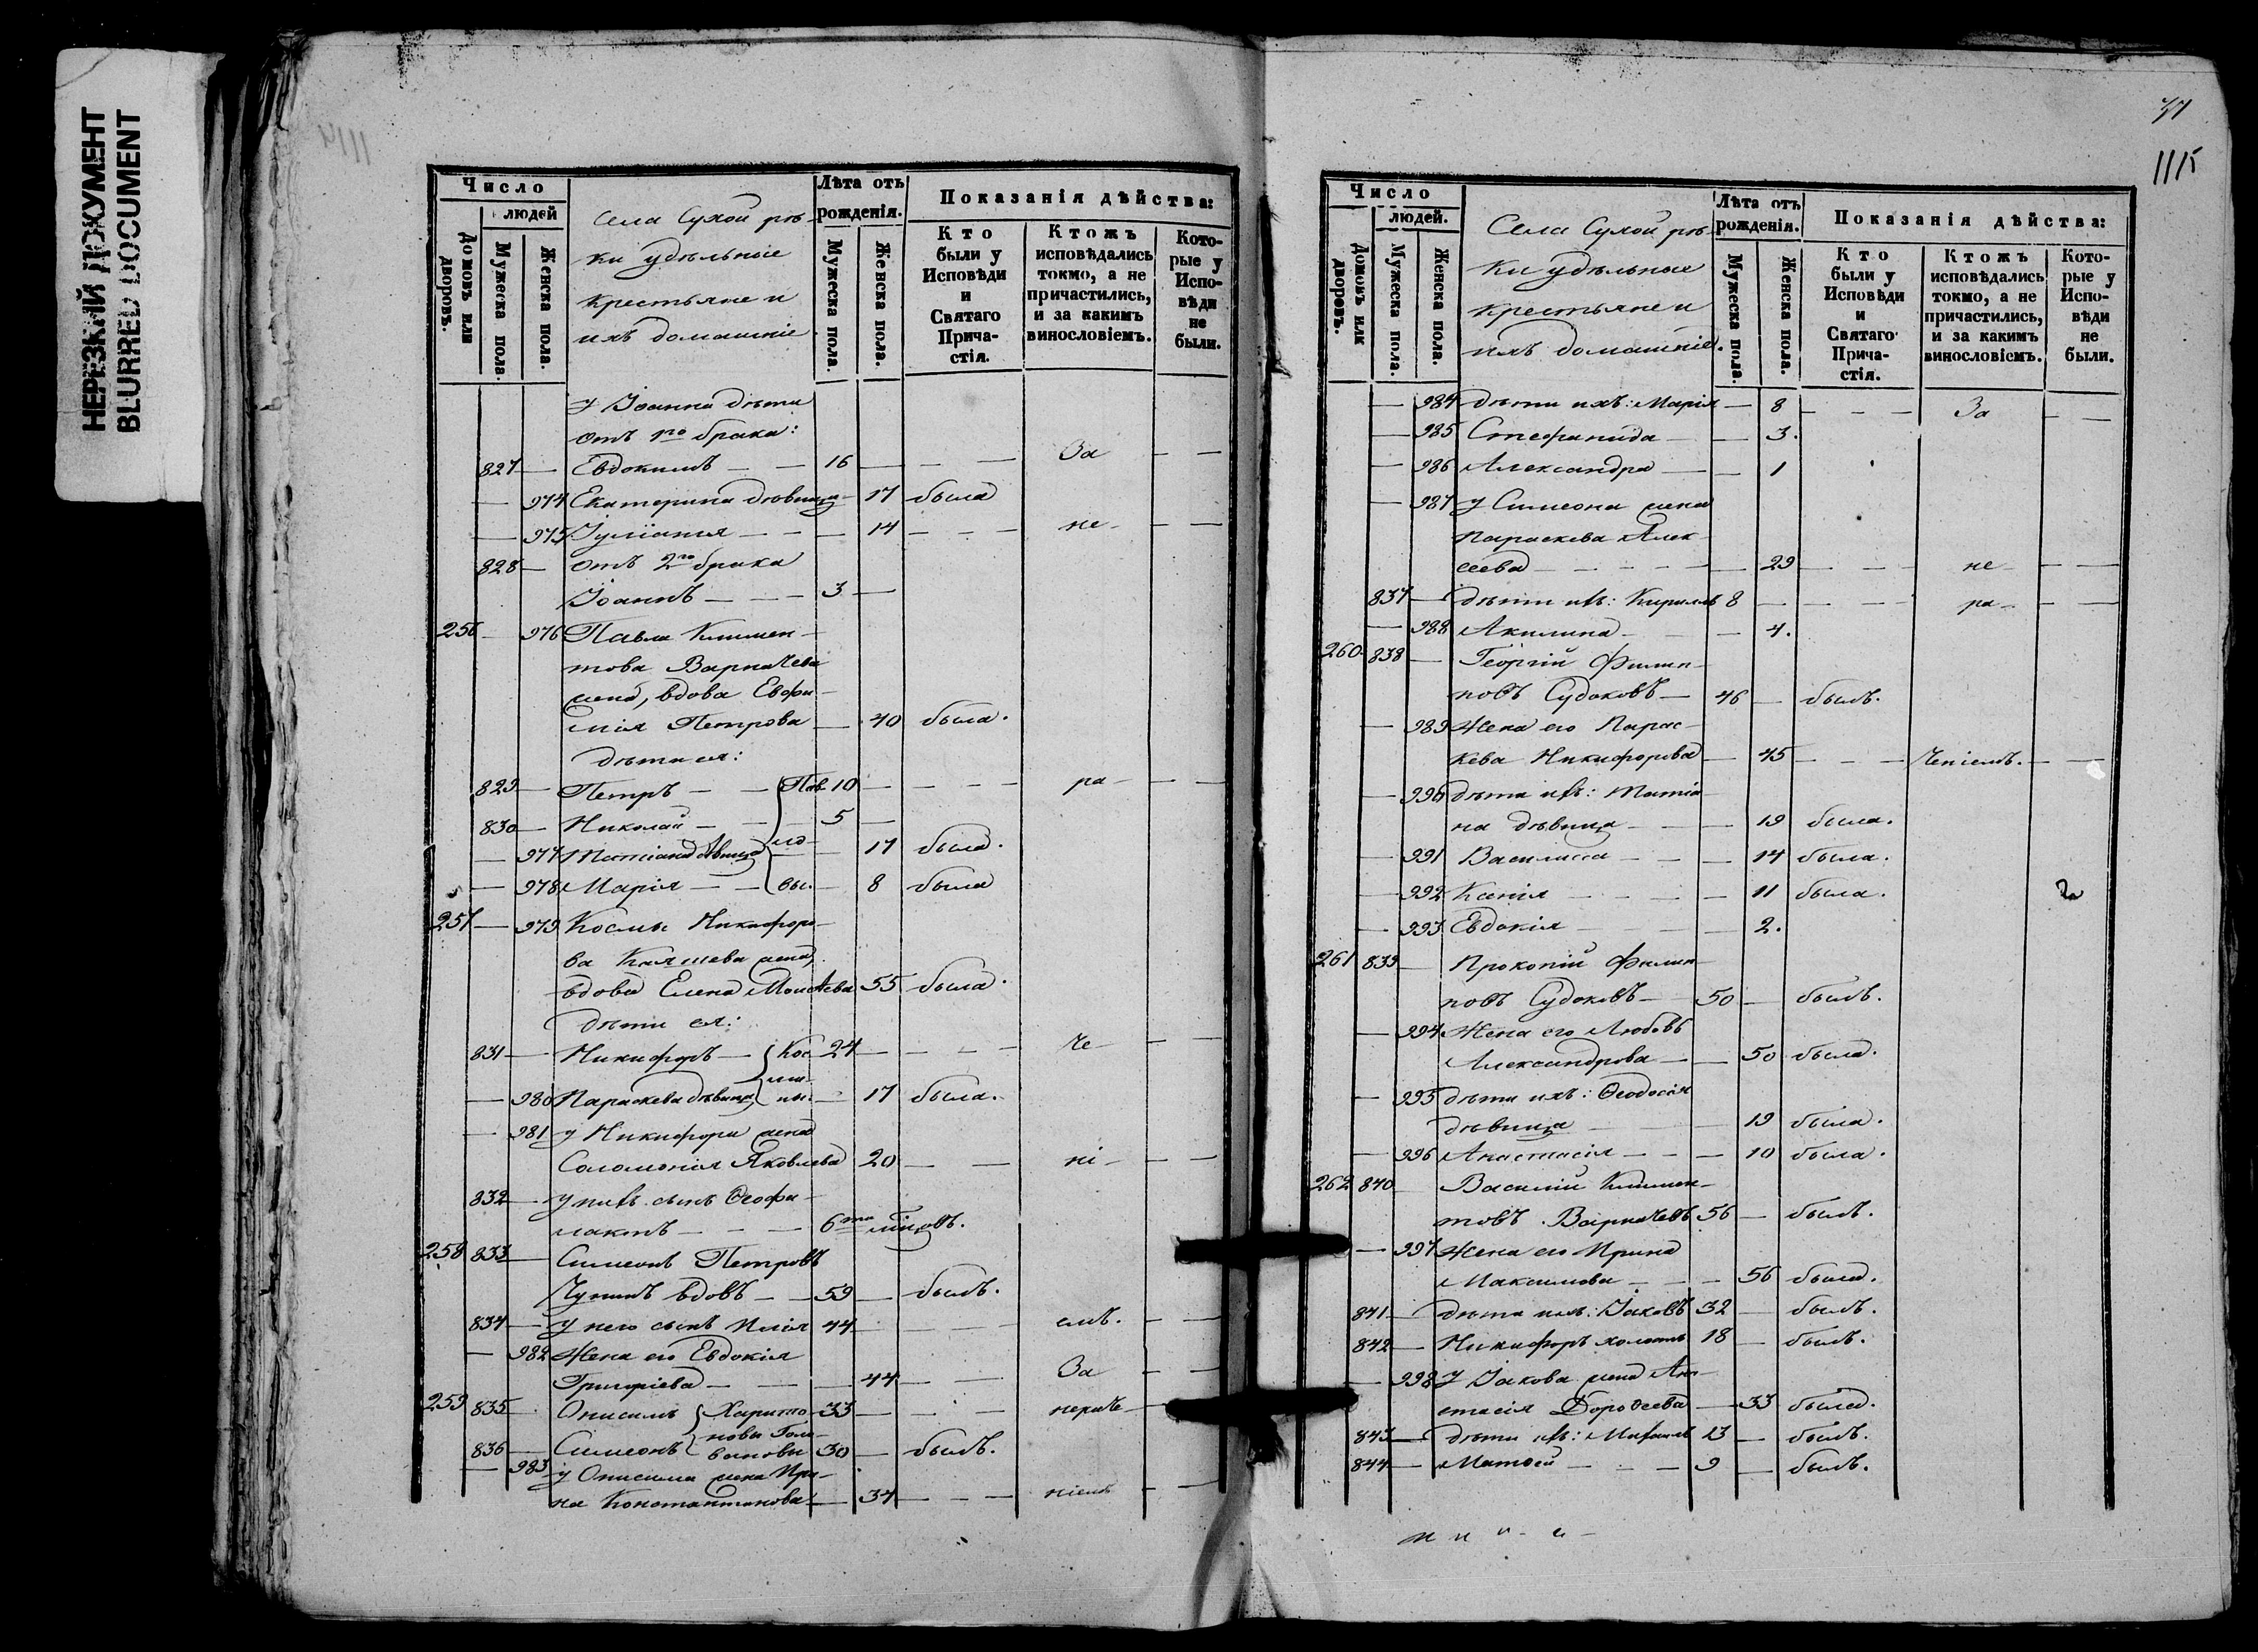 НЕРЕЗКИЙ ДОКУМЕНТ
BLURRED DOCUMENT
1114
Число
людей
Домовъ или дворовъ.
Мужеска пола.
Женска пола.
Села Сухой рѣ-
ки удѣльные
крестьяне и
ихъ домашніе
Лѣта отъ рожденія.
Мужеска пола.
Женска пола.
Показанія дѣйства:
Кто были у Исповѣди и Святаго Прича-стія.
Ктожъ исповѣдались токмо, а не причастились, и за какимъ винословіемъ.
Кото-рые у Испо-вѣди не были.
У Іоанна дѣти
отъ 1го брака:
827 — Евдокимъ — — 16 — — — За — —
— 974 Екатерина дѣвица — 17 была
— 975 Іуліанія — — — 14 — — — не — —
828 — отъ 2го брака
Іоаннъ — — — 3 —
256 — 976 Павла Климен-
това Варначева
жена, вдова Евфи-
мія Петрова — 40 была.
дѣти ея:
829 — Петръ — — Пав- 10 — — — — ра — —
830 — Николай — — 5 —
— 977 Татіана дѣвица ло- — 17 была.
— 978 Марія — — вы. — 8 была
257 — 979 Космы Никифоро-
ва жена,
вдова Елена Моисѣева 55 была.
дѣти ея:
831 — Никифоръ — Кос- 24 — — — — Че — —
ми-
— 980 Параскева дѣвица ны. — 17 была.
— 981 у Никифора жена
Соломонія Яковлева 20 — — ні — —
832 — у нихъ сынъ Ѳеофи-
лактъ — — — 6ти мѣсяцовъ.
258 833 — Симеонъ Петровъ
Чупинъ вдовъ — — 59 — былъ.
834 — у него сынъ Илія 44 — — — — емъ. — —
— 982 Жена его Евдокія
Григоріева — — — 44 — — За — —
259 835 — Онисимъ Харито- 33 — — — — нераче —
новы Голо-
836 — Симеонъ вановы 30 — былъ.
— 983 у Онисима жена Ири-
на Константинова — 34 — — — ніемъ — —
37
1115
Число
людей.
Домовъ илк дворовъ.
Мужеска пола.
Женска пола.
Села Сухой рѣ-
ки удѣльные
крестьяне и
ихъ домашніе.
Лѣта отъ рожденія.
Мужеска пола.
Женска пола.
Показанія дѣйства:
Кто были у Исповѣди и Святаго Прича-стія.
Ктожъ исповѣдались токмо, а не причастились, и за какимъ винословіемъ.
Кото-рые у Испо-вѣди не были.
— 984 дѣти ихъ: Марія — 8 — — — За — —
— 985 Стефанида — — 3.
— 986 Александра — — 1
— 987 у Симеона жена
Параскева Алек-
сеева — — — — — 29 — — — не — —
837 — дѣти ихъ: Кириллъ 8 — — — — ра — —
— 988 Акилина — — — 4.
260 838 — Георгій Филип-
повъ Судаковъ — 46 — былъ.
— 989 Жена его Парас-
кева Никифорова — 45 — — — Ченіемъ. — —
— 990 дѣти ихъ: Татіа-
на дѣвица — — — 19 была.
— 991 Василисса — — — 14 была.
— 992 Ксенія — — — — 11 была.
2
— 993 Евдокія — — — 2.
261 839 — Прокопій Филип-
повъ Судаковъ — 50 — былъ.
— 994 Жена его Любовь
Александрова — — 50 была.
— 995 дѣти ихъ: Ѳеодосія
дѣвица — — 19 была.
— 996 Анастасія — — — 10 была.
262 840 Василій Климен-
товъ Варначевъ 56 — былъ.
— 997 Жена его Ирина
Максимова — — — 56 была.
841 — дѣти ихъ: Іаковъ 32 — былъ.
842 — Никифоръ холостъ 18 — былъ.
— 998 У Іакова жена Ана-
стасія Дороѳеева — 33 была.
843 — дѣти ихъ: Михаилъ 13 — былъ.
844 — Матѳей — — — 9 — былъ.